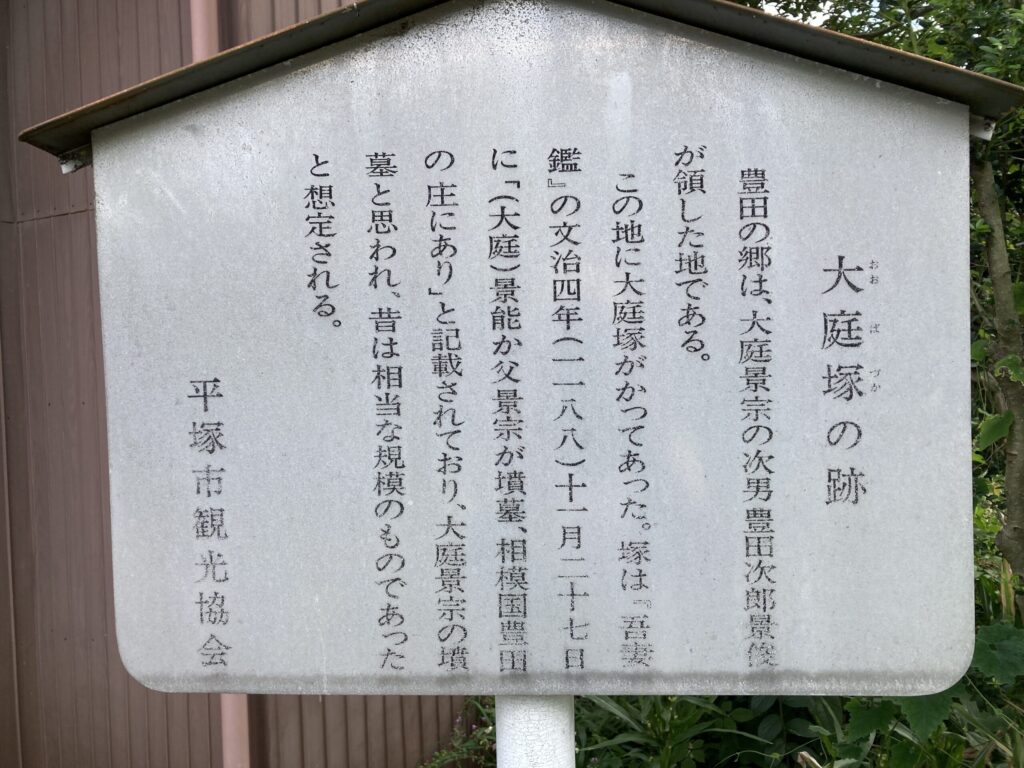 大庭塚の跡
おお ば づか
豊田の郷は、大庭景宗の次男豊田次郎景俊
が領した地である。
この地に大庭塚がかつてあった。塚は『吾妻
鑑』の文治四年(一一八八)十一月二十七日
に「(大庭)景能か父景宗が墳墓、相模国豊田
の庄にあり」と記載されており、大庭景宗の墳
墓と思われ、昔は相当な規模のものであった
と想定される。
平塚市観光協会